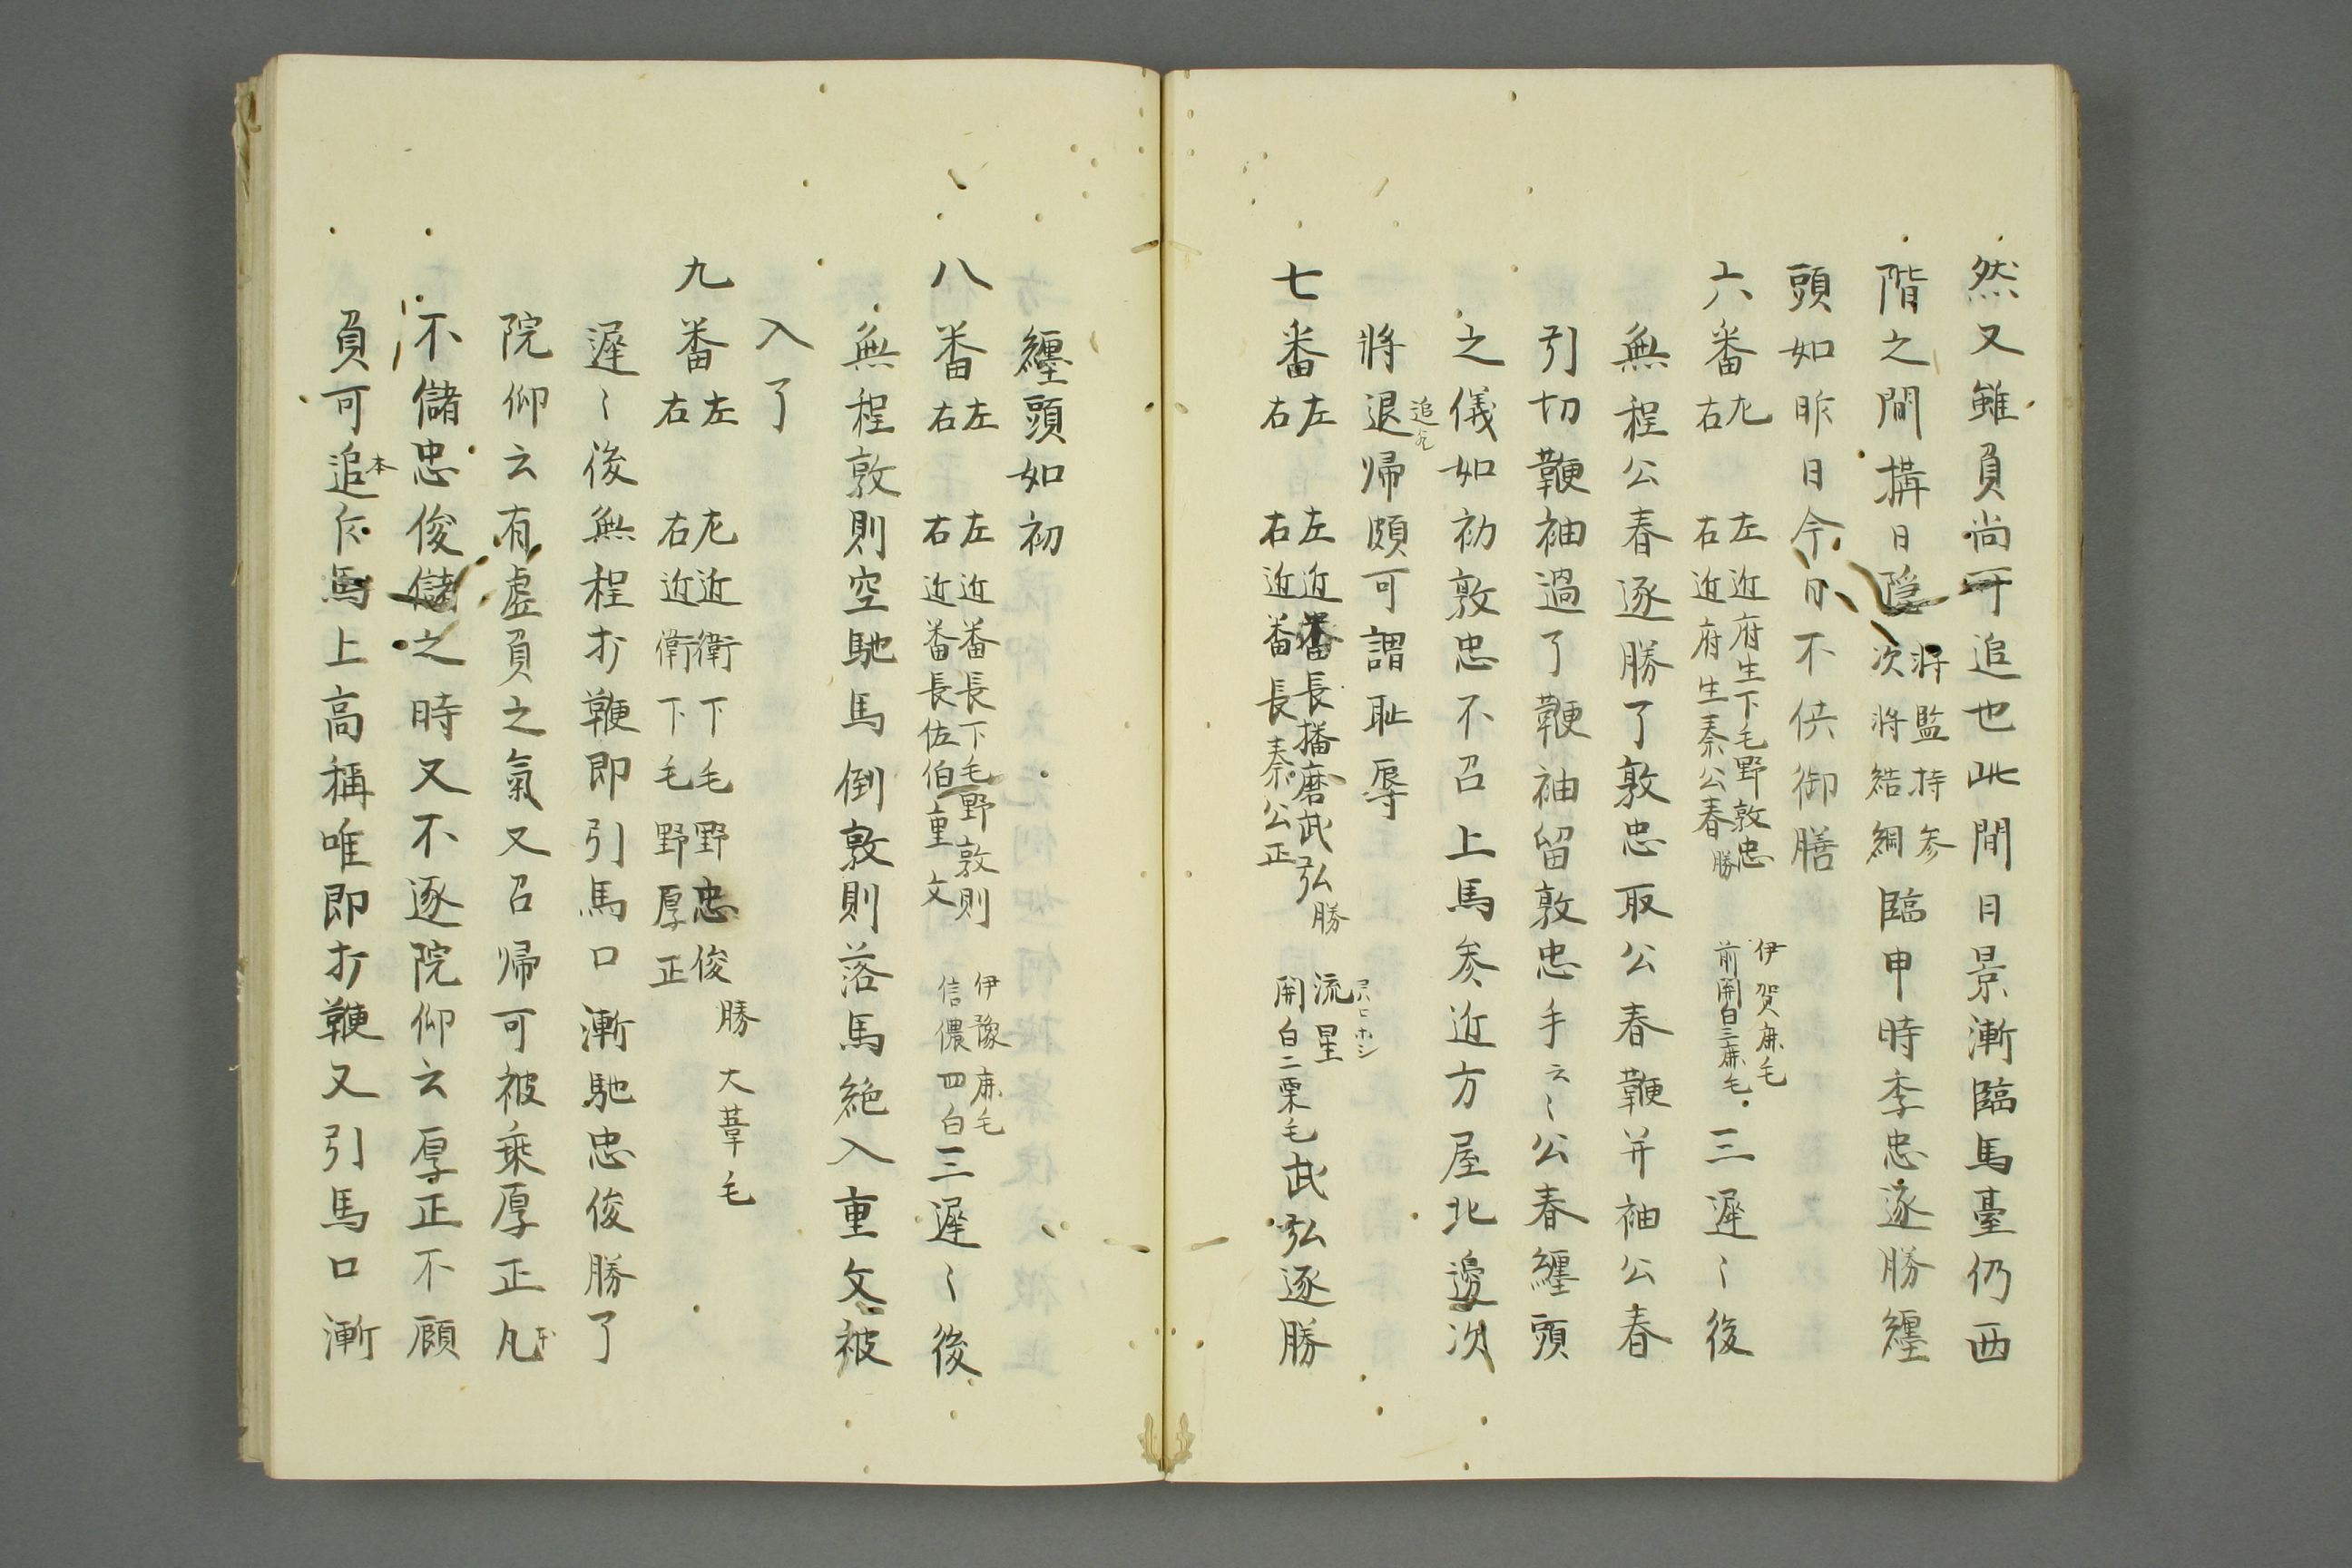 然又雖負尚可追也此間日景漸臨馬臺仍西
階之間搆日隠将監持参次将結綱臨申時季忠逐勝纒
頭如昨日今日不供御膳
六番左右 左近府生下毛野敦忠右近府生秦公春勝 伊賀鹿毛前開白三鹿毛三遅〻後
無程公春逐勝了敦忠取公春鞭并袖公春
引切鞭袖過了鞭袖留敦忠手云〻公春纒頭
之儀如初敦忠不召上馬参近方屋北邊次
将退帰頗可謂耻辱
追乍
七番左右 左近番長播磨武弘勝右近番長秦公正 流星開白二栗毛武弘逐勝
纒頭如初
八番左右 左近番長下毛野敦則右近番長佐伯重文 伊豫鹿毛信濃四白三遅〻後
無程敦則空馳馬倒敦則落馬絶入重文被
入了
九番左右 左近衛下毛野忠俊勝右近衛下毛野厚正 大葦毛
遅〻後無程打鞭即引馬口漸馳忠俊勝了
院仰云有虚負之氣又召帰可被乗厚正凡
不儲忠俊儲之時又不逐院仰云厚正不顧
負可追乍馬上高稱唯即打鞭又引馬口漸
本